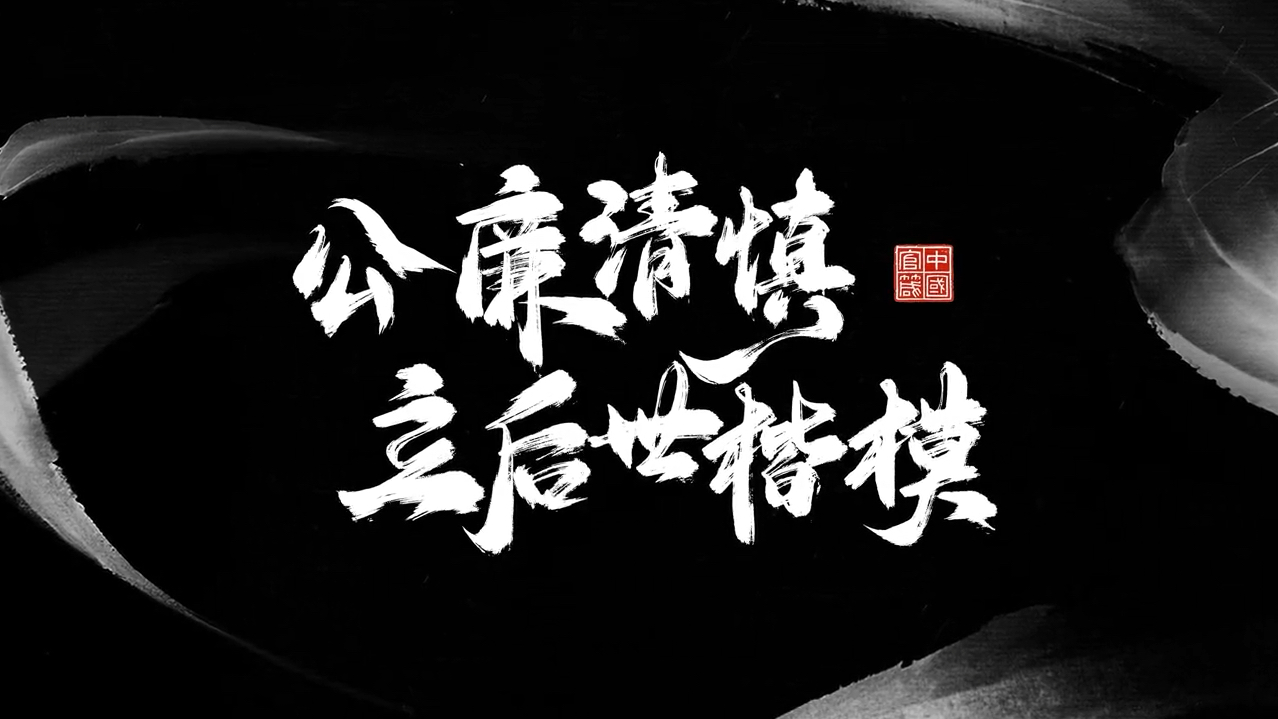 公廉清慎
中國官箴
立后世楷模